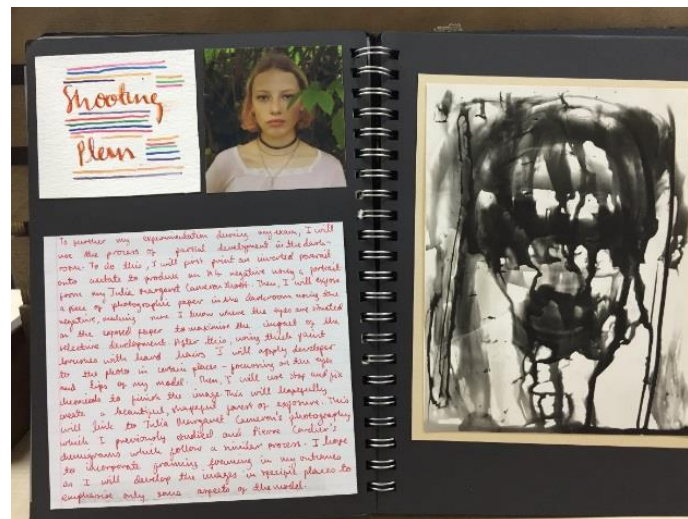 Shooting
Plan
To further my experimentation during my exam, I will
use the process of partial development in the dark-
room. To do this, I will first print an inverted portrait
onto acetate to produce an A4 negative using a portrait
from my Julia Margaret Cameron shoot. Then, I will expose
a piece of photographic paper in the darkroom using the
negative, making sure I know where the eyes are situated
on the exposed paper to maximise the impact of the
selective development. After this, using thick paint
brushes with hard hairs I will apply developer
to the photo in certain places - focussing on the eyes
and lips of my model. Then, I will use stop and fix
chemicals to finish the image. This will hopefully
create a beautiful, shapeful form of exposure. This
will link to Julia Margaret Cameron's photography
which I previously studied and Pierre Cordier's
chemigrams which follow a similar process. I hope
to incorporate framing, focusing in my outcomes
as I will develop the images in specific places to
emphasise only some aspects of the model.